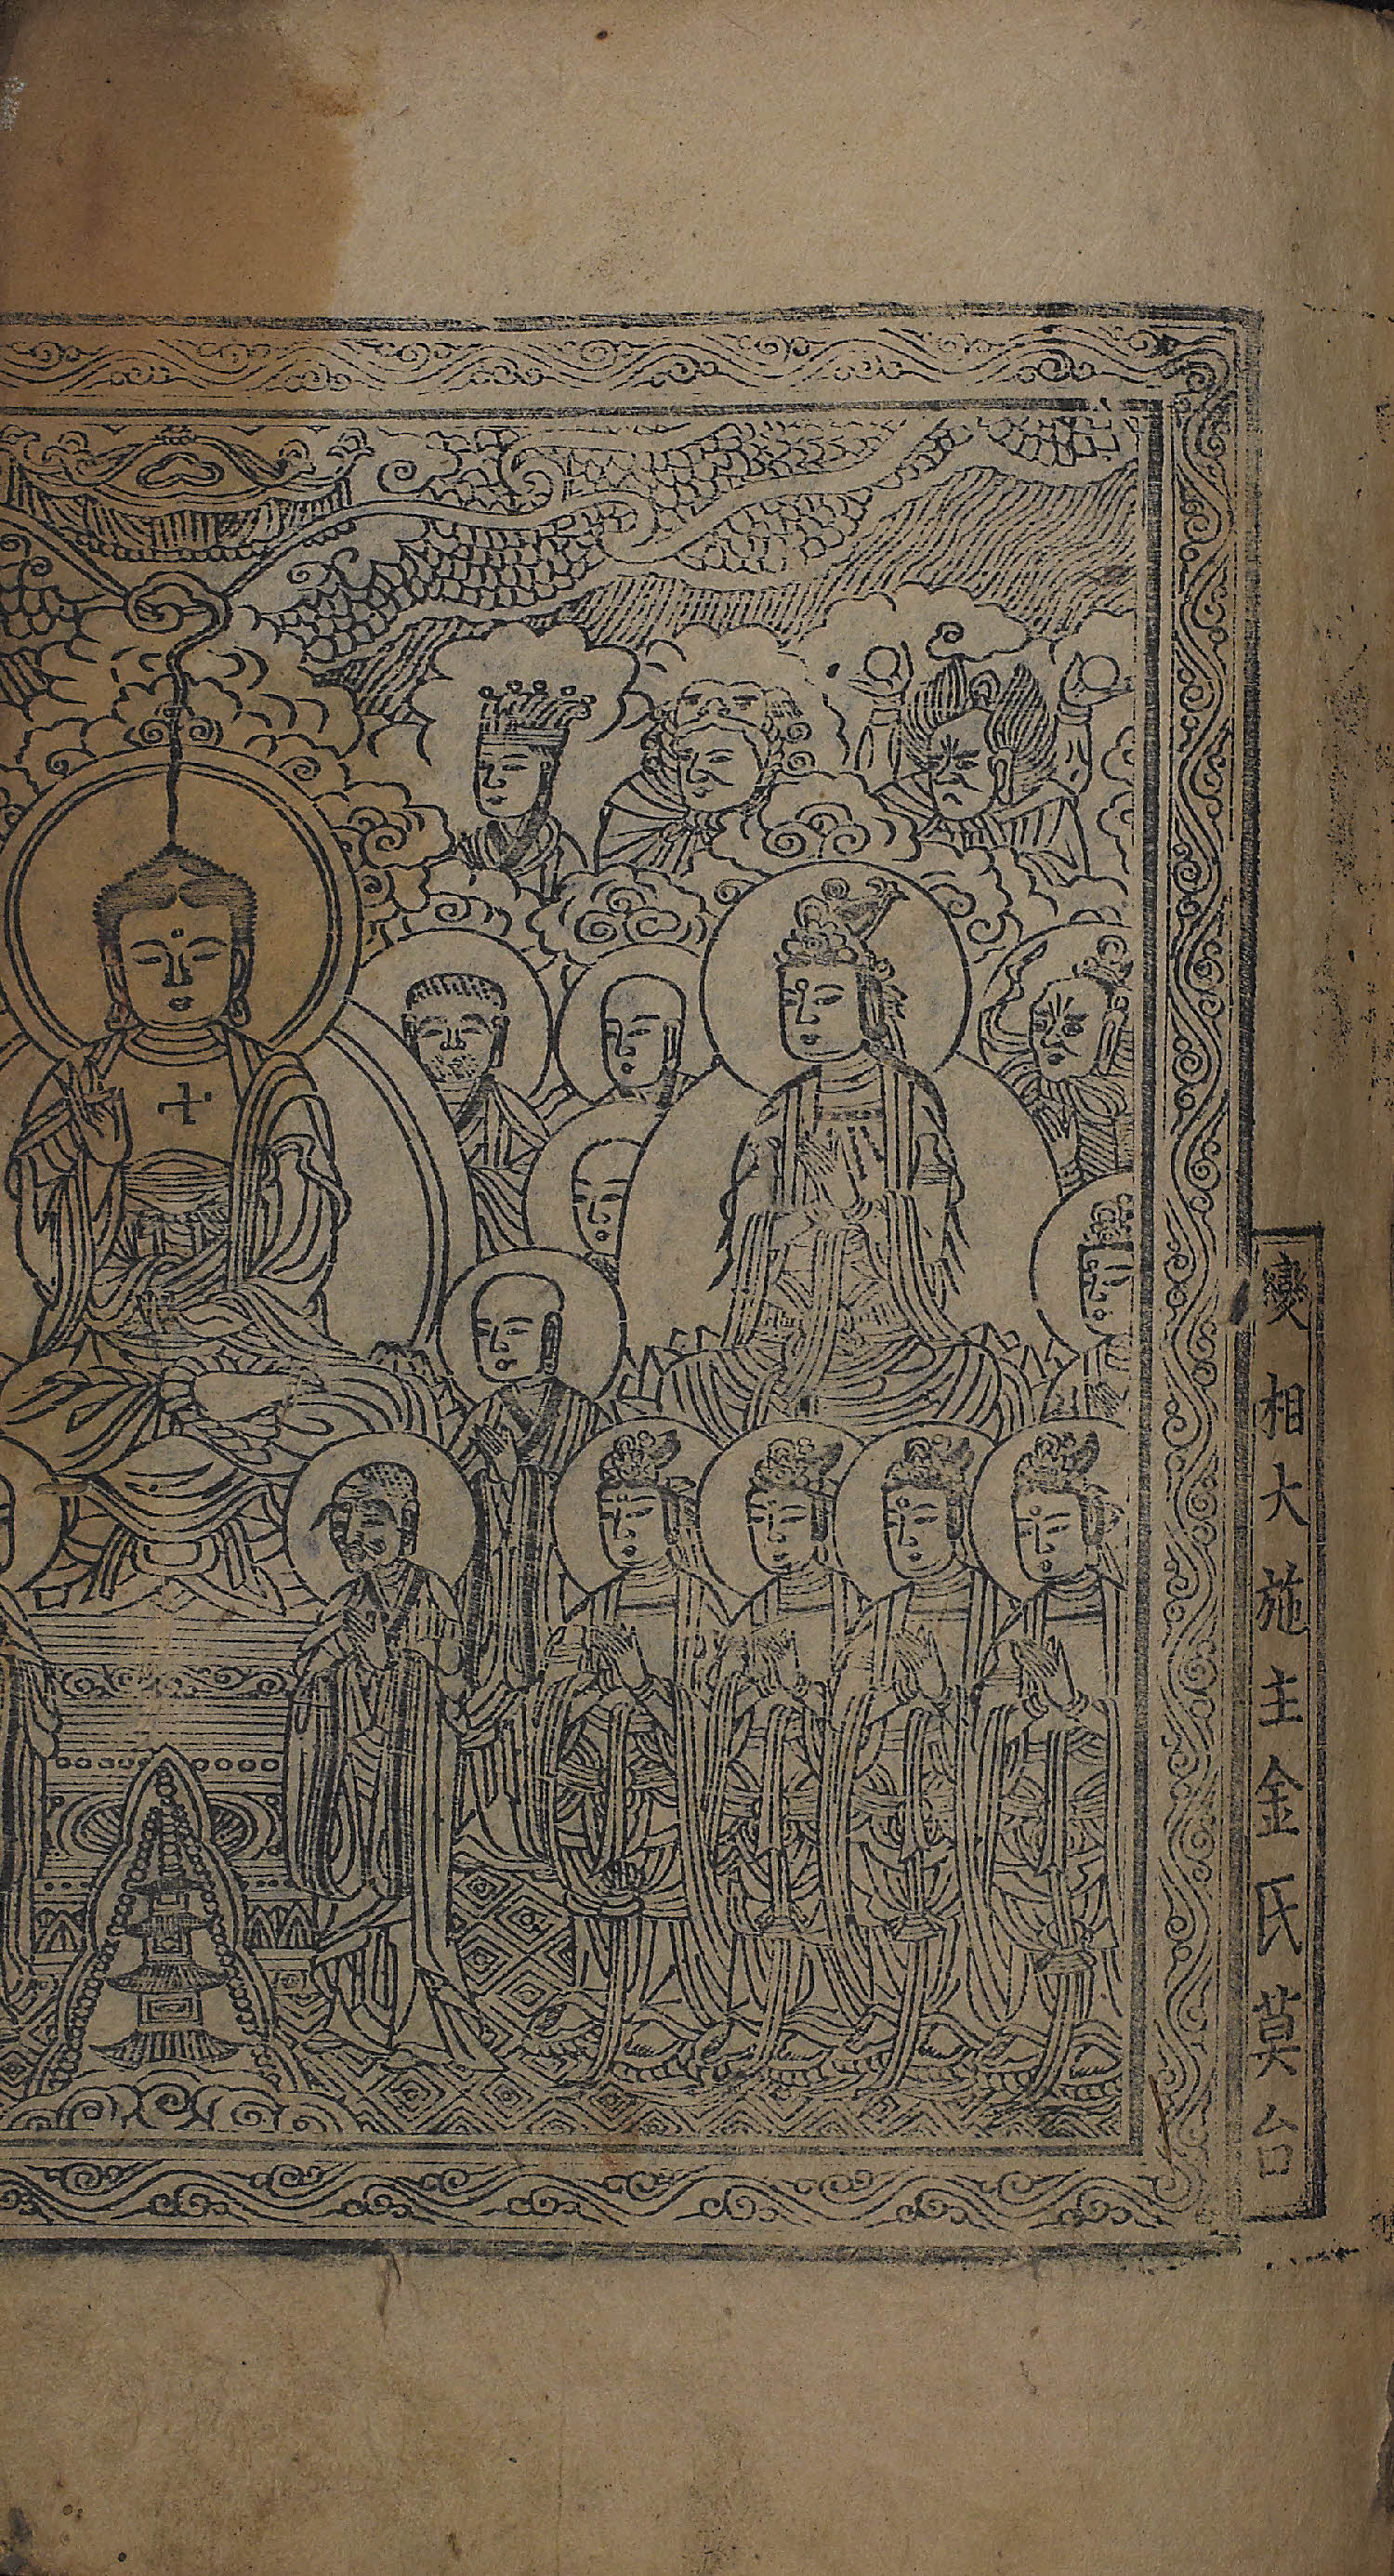 變相大施主金氏莫台